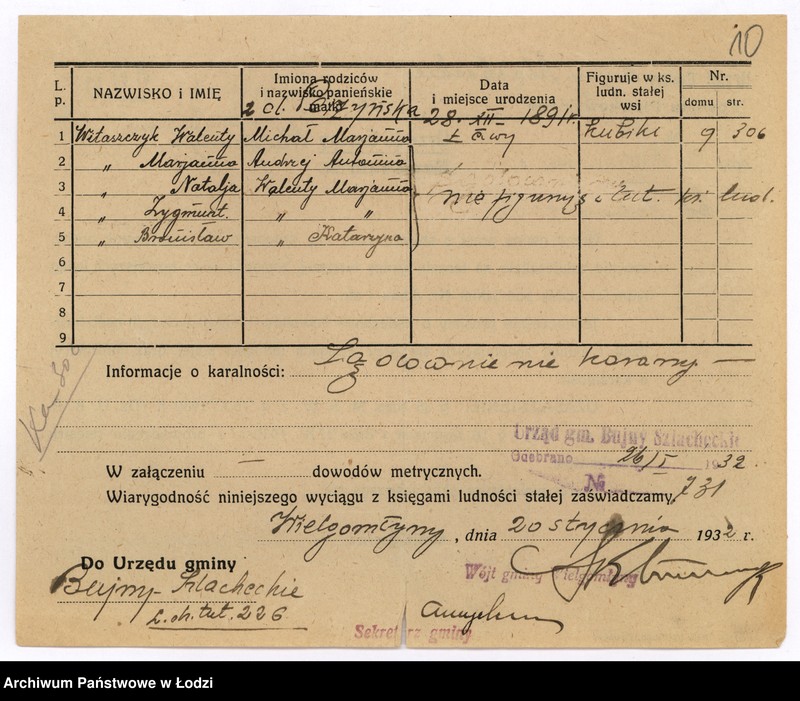 10
L. p. NAZWISKO i IMIĘ Imiona rodziców i nazwisko panieńskie matki Data i miejsce urodzenia Figuruje w ks. ludn. stałej wsi Nr. domu str.
28. XII 1891 r.
1 Witaszczyk Walenty Michał Marjanna Ławy Łubiki 9 306
2 " Marjanna Andrzej Antonina
3 " Natalja Walenty Marjanna nie figurują tut. ks. lud.
4 " Zygmunt. " "
5 " Bronisław " Katarzyna
6
7
8
9
Informacje o karalności: Sądownie nie karany —
Urząd gm. Bujny Szlacheckie
Odebrano 26/I 1932.
W załączeniu — dowodów metrycznych. №
Wiarygodność niniejszego wyciągu z księgami ludności stałej zaświadczamy. 731
Wielgomłyny, dnia 20 stycznia 1932 r.
Do Urzędu gminy
Wójt gminy Wielgomłyny
Bujny-Szlacheckie
L. dz. tut. 226
Sekretarz gminy
Archiwum Państwowe w Łodzi